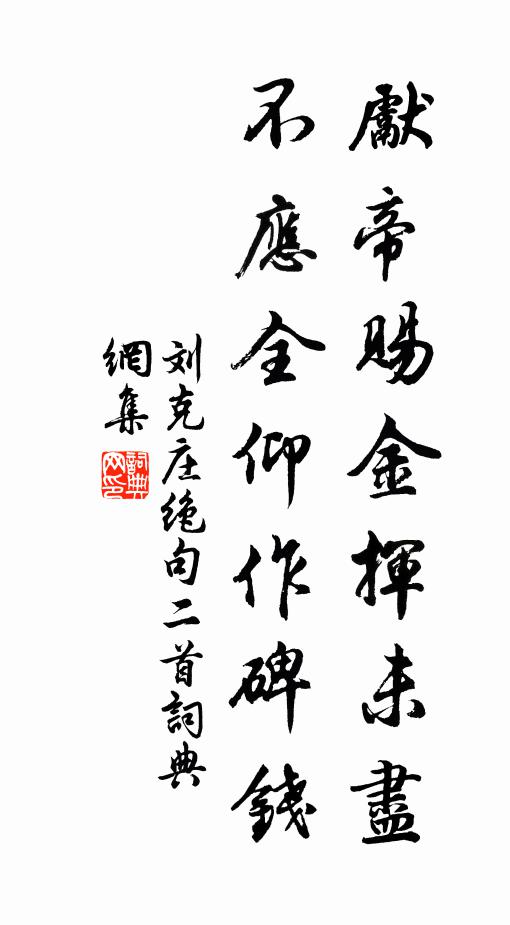 獻帝賜金揮未盡
不應全仰作碑錢
刘克庄绝句二首詞典
網集
詞典
网印